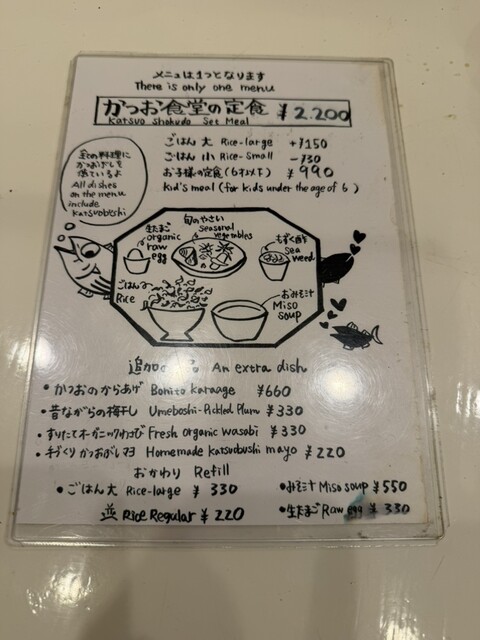 メニューは1つとなります
There is only one menu
かつお食堂の定食 ¥2.200
Katsuo Shokudo Set Meal
ごはん 大 Rice-large +¥150
ごはん 小 Rice-small -¥30
お子様の定食(6才以下) ¥990
Kid's meal (for kids under the age of 6)
全ての料理に
かつおぶしを
使ているよ
All dishes
on the menu
include
Katsuobushi
生たまご
organic
raw
egg
旬のやさい
seasonal
vegetables
もずく酢
sea
weed
ごはん
Rice
おみそ汁
Miso
soup
追加の一品 An extra dish
• かつおのからあげ Bonito Karaage ¥660
• 昔ながらの梅干し Umeboshi-Pickled Plum ¥330
• すりたてオーガニックわさび Fresh organic wasabi ¥330
• 手づくりかつおぶしマヨ Homemade Katsuobushi mayo ¥220
おかわり Refill
• ごはん 大 Rice-large ¥330
• みそ汁 Miso soup ¥550
並 Rice Regular ¥220
• 生たまご Raw egg ¥330